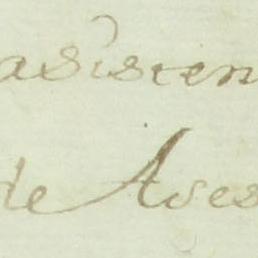 asisten
de Ases